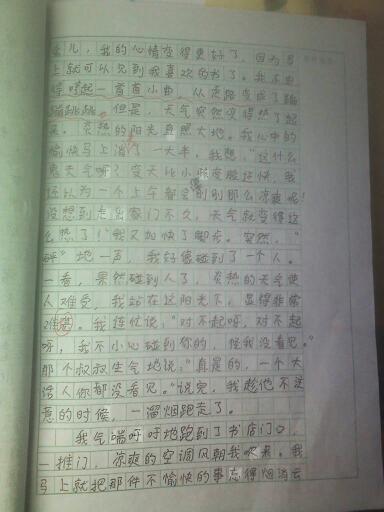 会儿，我的心情变得更好了，因为马
上就可以见到我喜欢的书了。我不由
得哼起一首首小曲，从走路变成了蹦
蹦跳跳。但是，天气突然变得热了起
来。炎热的阳光直照大地。我心中的
愉快马上消了一大半，我想，"这什么
鬼天气啊？变天比小孩变脸还快，我
还以为一个上午都会刚刚那么凉爽呢！
没想到走出家门不久，天气就变得这
么热了！"我又加快了脚步。突然，"
砰"地一声，我好像碰到了一个人。
一看，果然碰到人了，炎热的天气使
人难受，我站在这阳光下，显得非常
难受。我连忙说："对不起呀，对不起
呀，我不小心碰到你的，怪我没看见。"
那个叔叔生气地说："真是的，一个大
活人你都没看见。"说完，我趁他不注
意的时候，一溜烟跑走了。
我气喘呼呼地跑到了书店门口，
一推门，凉爽的空调风朝我吹来。我
马上就把那件不愉快的事忘得烟消云